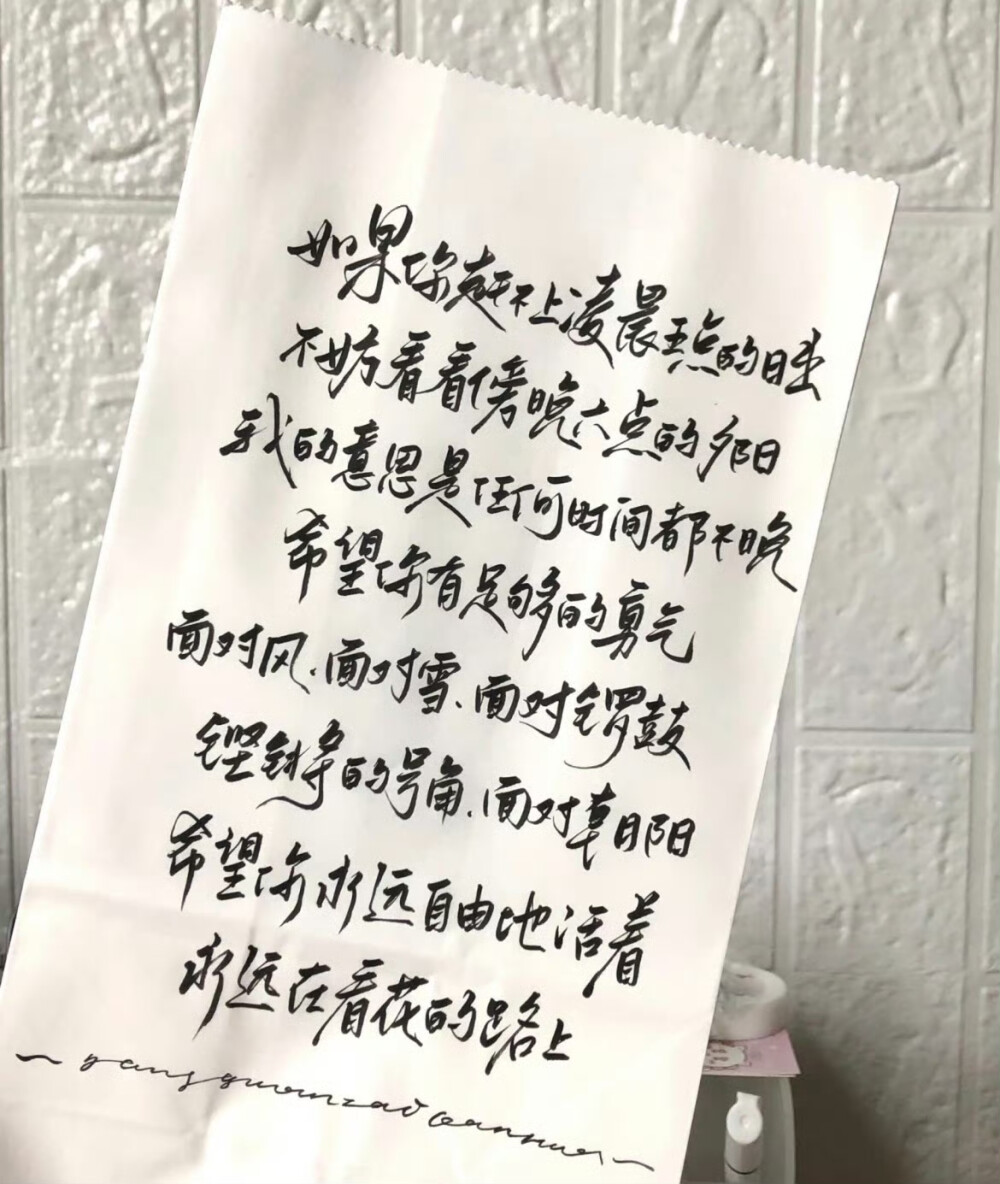 如果你赶不上凌晨五点的日出
不妨看看傍晚六点的夕阳
我的意思是任何时间都不晚
希望你有足够的勇气
面对风、面对雪、面对锣鼓
铿锵的号角、面对草日阳
希望你永远自由地活着
永远在看花的路上